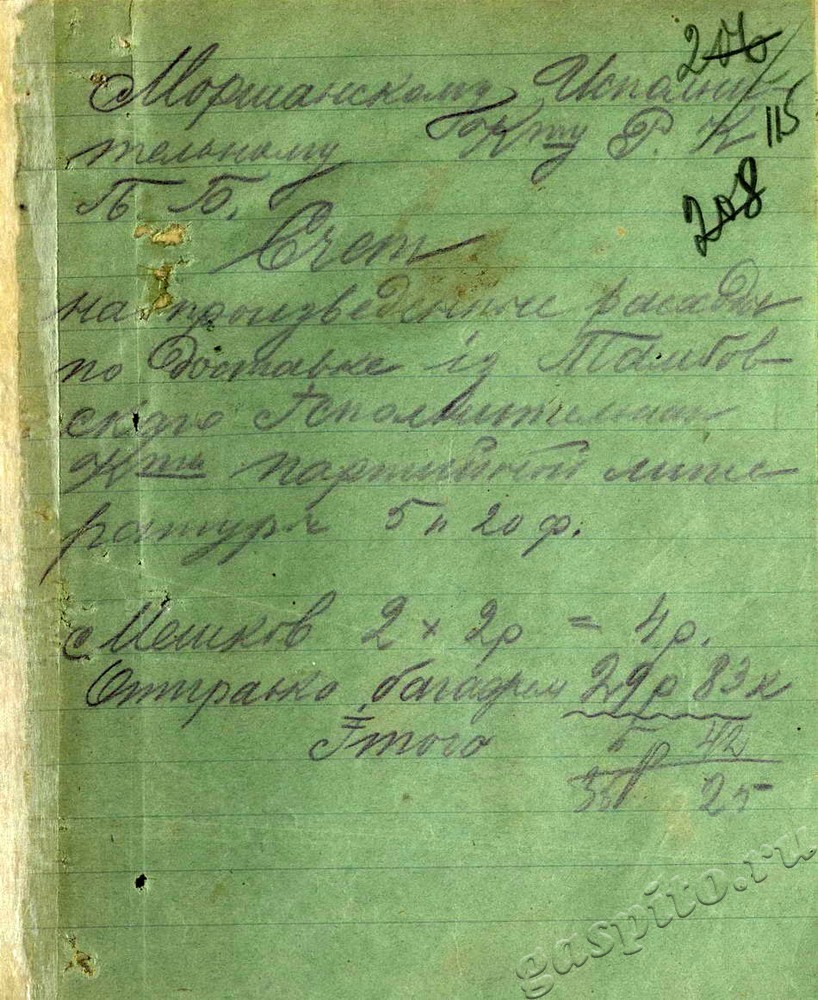 206
115
208
Моршанскому Исполни-
тельному Кту Р. К
П Б.
Счет
на произведенные расходы
по доставке из Тамбов-
скаго Исполнительнаго
Кта партийной лите-
ратуры 5 п 20 ф.
Мешков 2 × 2р = 4р.
Отправка багажем 29р 83к
Итого
42
25
gaspito.ru